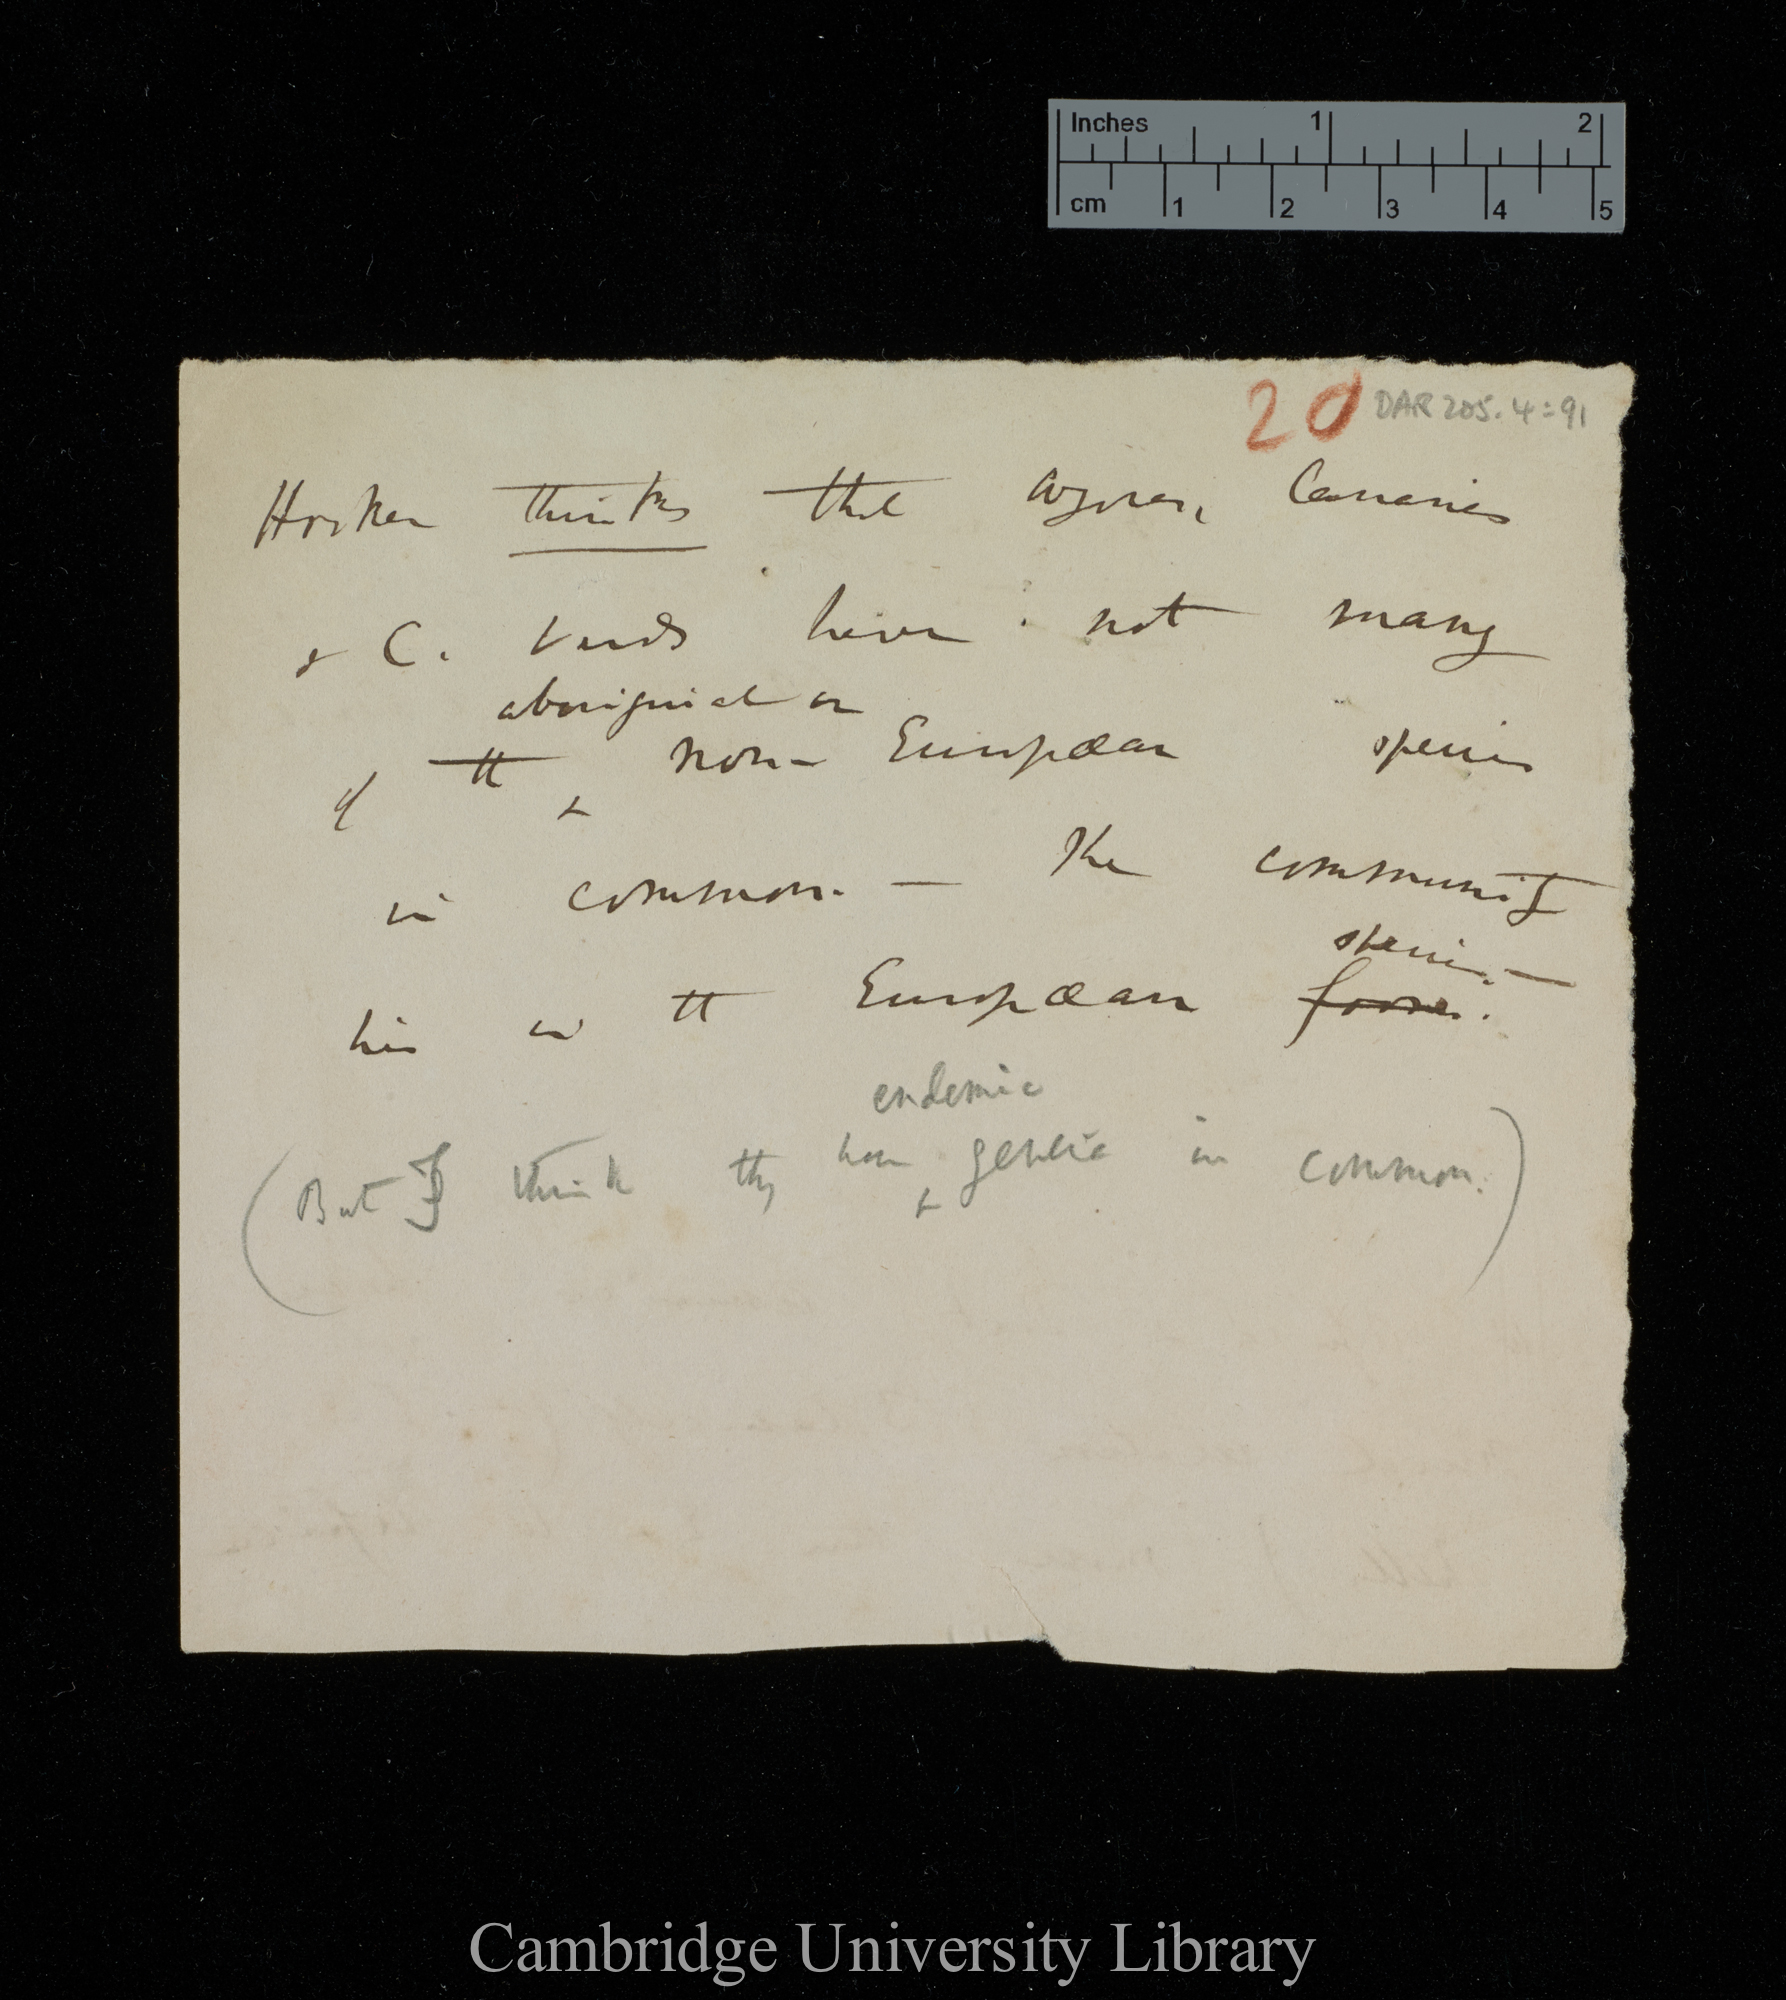 Inches 1 2
cm 1 2 3 4 5
20 DAR 205.4:91
Hooker thinks that Azores, Canaries
& C. Verds have not many
aboriginal or
of the non-European species
in common. — The community
species —
lies in the European forms.
endemic
(But I think they have genera in common.)
Cambridge University Library